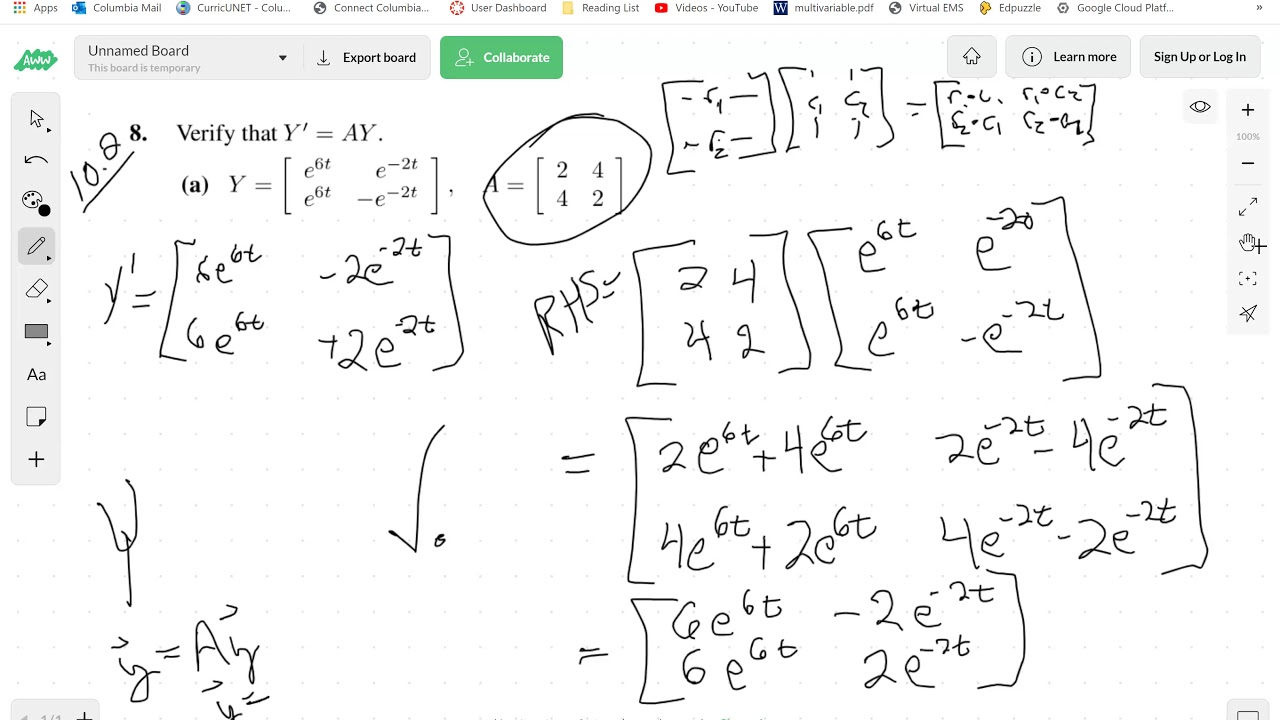 Apps Columbia Mail CurricUNET - Colu... Connect Columbia... User Dashboard Reading List Videos - YouTube multivariable.pdf Virtual EMS Edpuzzle Google Cloud Platf... »
AWW Unnamed Board Export board Collaborate Learn more Sign Up or Log In
This board is temporary
10.8
8. Verify that Y′ = AY.
(a) Y = [ e^{6t} e^{-2t} ; e^{6t} -e^{-2t} ], A = [ 2 4 ; 4 2 ]
[ - r1 - ; - r2 - ] [ c1 c2 ] = [ r1·c1 r1·c2 ; r2·c1 r2·c2 ]
100%
y' = [ 6e^{6t} -2e^{-2t} ; 6e^{6t} +2e^{-2t} ]
RHS = [ 2 4 ; 4 2 ] [ e^{6t} e^{-2t} ; e^{6t} -e^{-2t} ]
= [ 2e^{6t} + 4e^{6t} 2e^{-2t} - 4e^{-2t} ; 4e^{6t} + 2e^{6t} 4e^{-2t} - 2e^{-2t} ]
= [ 6e^{6t} -2e^{-2t} ; 6e^{6t} 2e^{-2t} ]
Aa
Y
y⃗ = Ay⃗
y⃗ =
1/1